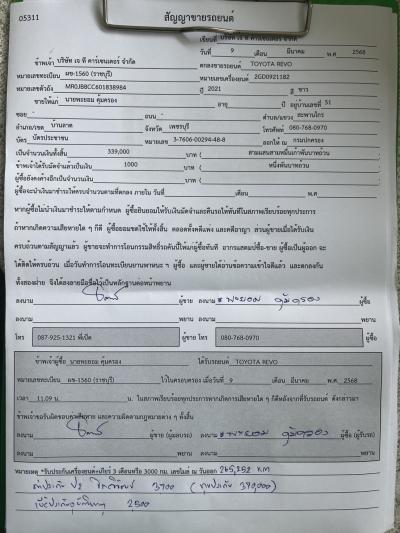 05311
สัญญาขายรถยนต์
เขียนที่ บริษัท เจ ที คาร์เซนเตอร์ จำกัด
วันที่ 9 เดือน มีนาคม พ.ศ 2568
ข้าพเจ้า บริษัท เจ ที คาร์เซนเตอร์ จำกัด ตกลงขายรถยนต์ TOYOTA REVO
หมายเลขทะเบียน ผข-1560 (ราชบุรี) หมายเลขเครื่องยนต์ 2GD0921182
หมายเลขตัวถัง MR0JB8CC601838984 ปี 2021 สี ขาว
ขายให้แก่ นายพะยอม คุ้มครอง อายุ ปี อยู่บ้านเลขที่ 51
ซอย - ถนน - ตำบล/แขวง สะพานไกร
อำเภอ/เขต บ้านลาด จังหวัด เพชรบุรี โทรศัพท์ 080-768-0970
บัตร บัตรประชาชน หมายเลข 3-7606-00294-48-8 ออกให้ ณ กรมปกครอง
เป็นจำนวนเงินทั้งสิ้น 339,000 บาท ( สามแสนสามหมื่นเก้าพันบาทถ้วน
ข้าพเจ้าได้รับมัดจำแล้วเป็นเงิน 1000 บาท ( หนึ่งพันบาทถ้วน
ผู้ซื้อยังคงค้างอีกเป็นจำนวนเงิน บาท (
ผู้ซื้อจะนำเงินมาชำระให้ครบจำนวนตามที่ตกลง ภายใน วันที่ เดือน พ.ศ.
หากผู้ซื้อไม่นำเงินมาชำระให้ตามกำหนด ผู้ซื้อยินยอมให้ริบเงินมัดจำและคืนรถให้ทันทีในสภาพเรียบร้อยทุกประการ
ถ้าหากเกิดความเสียหายใด ๆ ก็ดี ผู้ซื้อยอมชดใช้ให้ทั้งสิ้น ตลอดทั้งคดีแพ่ง และคดีอาญา ส่วนผู้ขายเมื่อได้รับเงิน
ครบถ้วนตามสัญญาแล้ว ผู้ขายจะทำการโอนกรรมสิทธิ์รถคันนี้ให้แก่ผู้ซื้อทันที อากรแสตมป์ซื้อ-ขาย ผู้ซื้อเป็นผู้ออก จะ
ได้ติดให้ครบถ้วน เมื่อวันทำการโอนทะเบียนยานพาหนะ ฯ ผู้ซื้อ และผู้ขายได้อ่านข้อความเข้าใจดีแล้ว และตกลงกัน
ทั้งสองฝ่าย จึงได้ลงลายมือชื่อไว้เป็นหลักฐานต่อหน้าพยาน
ลงนาม ผู้ขาย ลงนาม พะยอม คุ้มครอง ผู้ซื้อ
ลงนาม พยาน ลงนาม พยาน
โทร 087-925-1321 พี่เปิ้ล ผู้ขาย โทร 080-768-0970 ผู้ซื้อ
ข้าพเจ้าผู้ซื้อ นายพะยอม คุ้มครอง ได้รับรถยนต์ TOYOTA REVO
หมายเลขทะเบียน ผข-1560 (ราชบุรี) ไว้ในครอบครอง เมื่อวันที่ 9 เดือน มีนาคม พ.ศ. 2568
เวลา 11.09 น. น. ในสภาพเรียบร้อยทุกประการหากเกิดการเสียหายใด ๆ ก็ดีหลังจากที่รับรถยนต์ ดังกล่าวมา
ข้าพเจ้าขอรับผิดชอบชดใช้ค่าเสียหาย และความผิดตามกฎหมายต่าง ๆ ทั้งสิ้น
ลงนาม ผู้ขาย (ผู้มอบรถ) ลงนาม พะยอม คุ้มครอง ผู้ซื้อ (ผู้รับรถ)
ลงนาม พยาน ลงนาม พยาน
หมายเหตุ *รับประกันเครื่องยนต์+เกียร์ 3 เดือนหรือ 3000 กม. เลขไมล์ ณ วันออก 265,252 KM
3900 (ทุนประกัน 390,000)
2,500